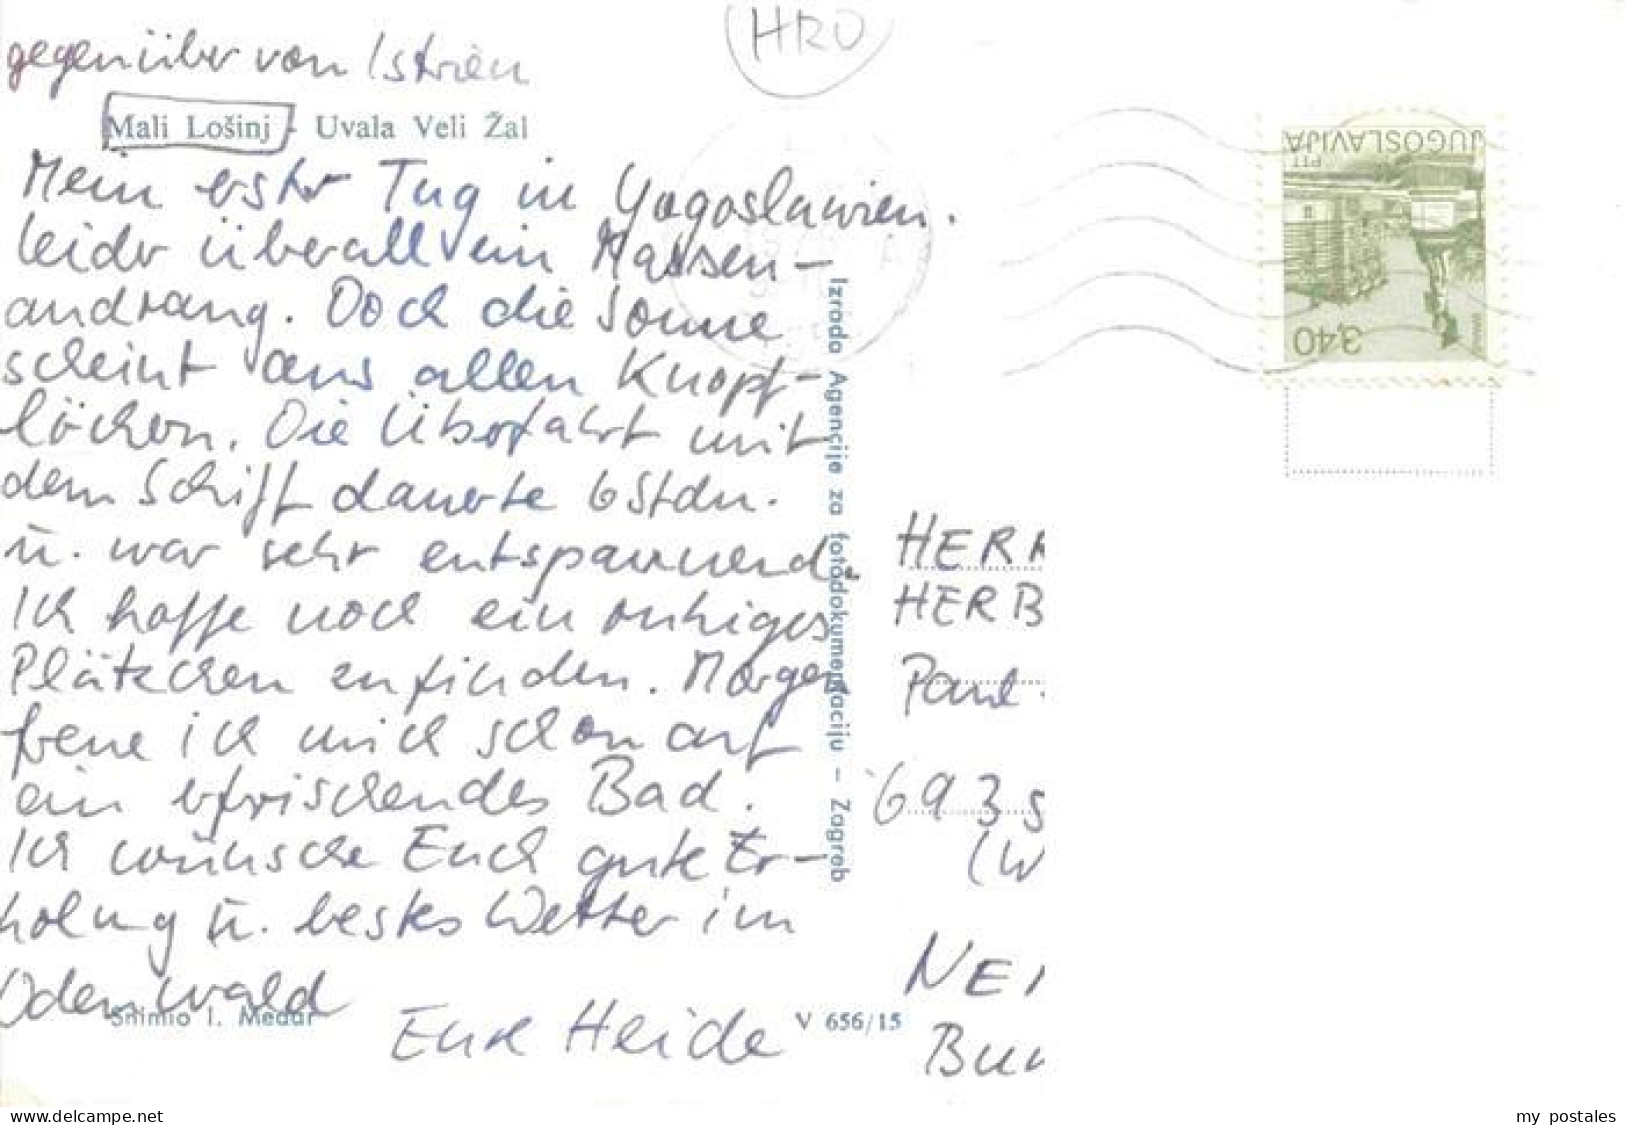 HRO
gegenüber von Istrien
Mali Lošinj - Uvala Veli Žal
Mein erster Tag in Yugoslawien.
Leider überall ein Massen-
andrang. Doch die Sonne
scheint aus allen Knopf-
löchern. Die Überfahrt mit
dem Schiff dauerte 6 Stdn.
u. war sehr entspannend.
Ich hoffe noch ein ruhiges
Plätzchen zu finden. Morgen
freue ich mich schon auf
ein erfrischendes Bad.
Ich wünsche Euch gute Er-
holung u. bestes Wetter im
Odenwald
Eure Heide
Snimio I. Medar
V 656/15
Izrada Agencije za fotodokumentaciju – Zagreb
JUGOSLAVIJA
PTT
3,40
HERR
HERB
Paul-
693
(W
NE
Bun
my postales
delcampe.net